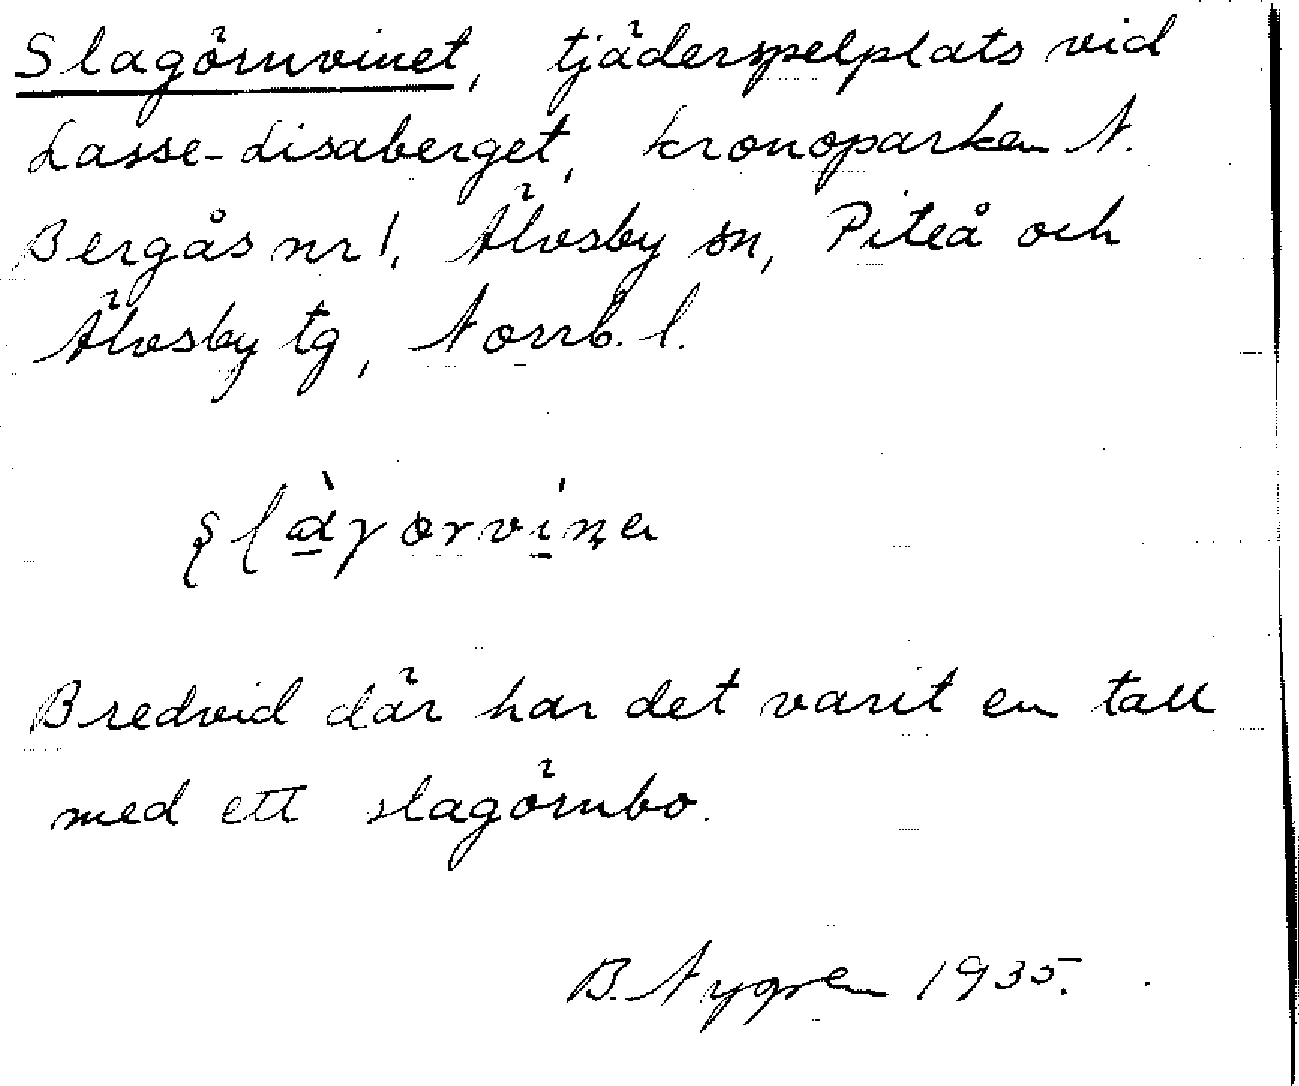 Slagörnvinet, tjäderspelplats vid
Lasse-Lisaberget, kronoparken N.
Bergås nr 1, Älvsby sn, Piteå och
Älvsby tg, Norrb. l.
Bredvid där har det varit en tall
med ett slagörnbo.
B. Nygren 1935.